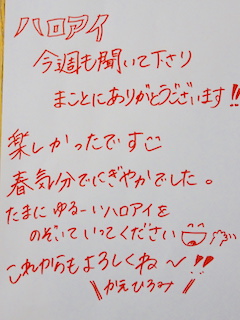 ハロアイ
今週も聞いて下さり
まことにありがとうございます!!
楽しかったです
春気分でにぎやかでした。
たまにゆるーいハロアイを
のぞいていってください
これからもよろしくね〜!!
\\かえひろみ//